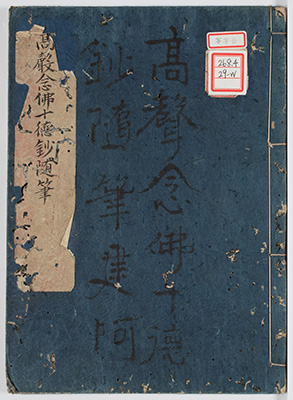 高聲念佛十德
鈔隨筆建阿
高聲念佛十德鈔隨筆
268.4
29-W